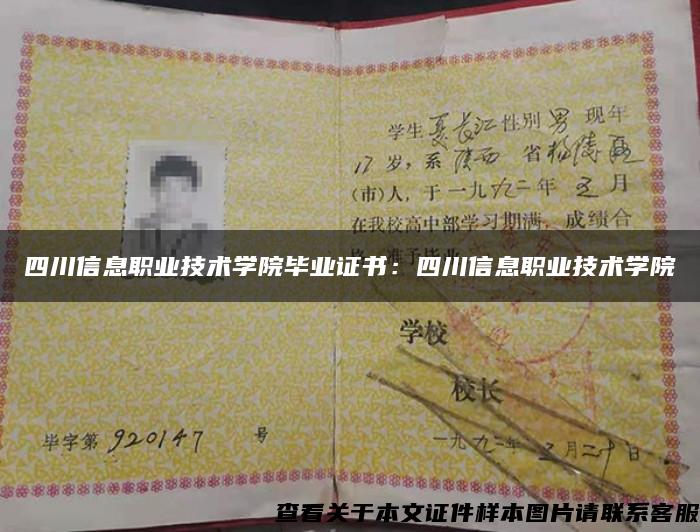 学生夏长江性别男现年
17岁，系陕西省杨陵区
（市）人，于一九九二年五月
在我校高中部学习期满，成绩合
四川信息职业技术学院毕业证书：四川信息职业技术学院
学校
校长
毕字第920147号
一九九二年五月二十日
查看关于本文证件样本图片请联系客服